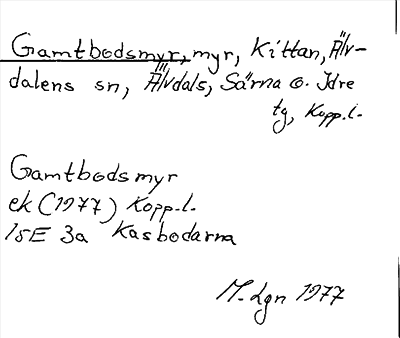 Gamtbodsmyr, myr, Kittan, Älv-
dalens sn, Älvdals, Särna o. Idre
tg, Kopp.l.
Gamtbodsmyr
ek (1977) Kopp.l.
15E 3a Kasbodarna
M. Lgn 1977